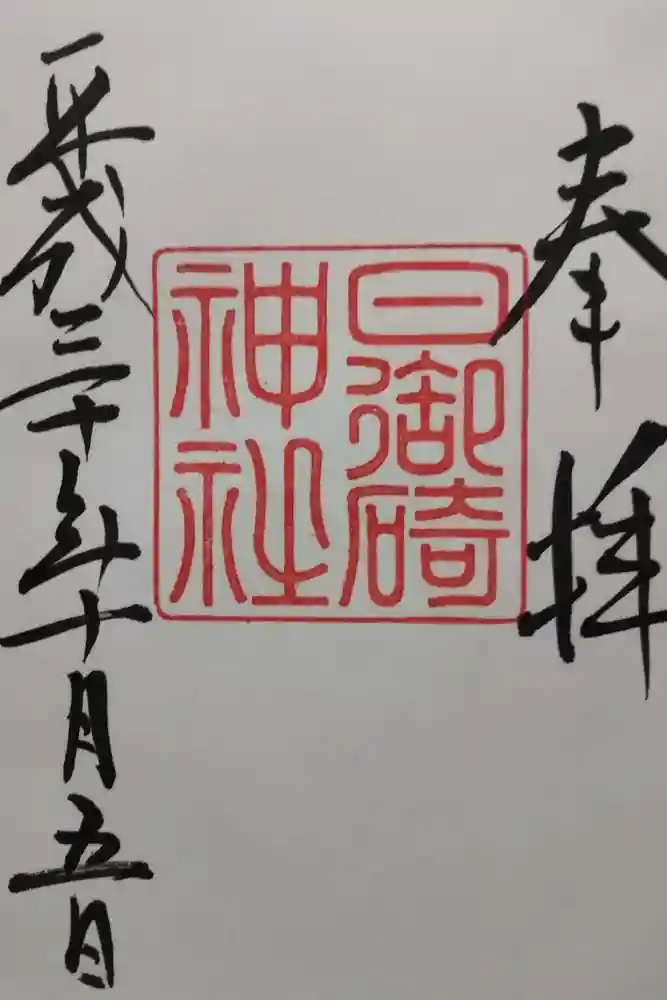 奉拝
日御碕
神社
平成三十年十月五日